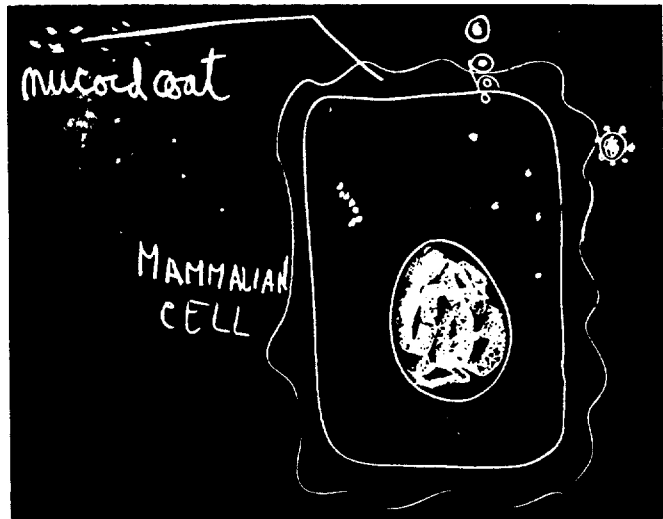 mucoid coat
MAMMALIAN
CELL